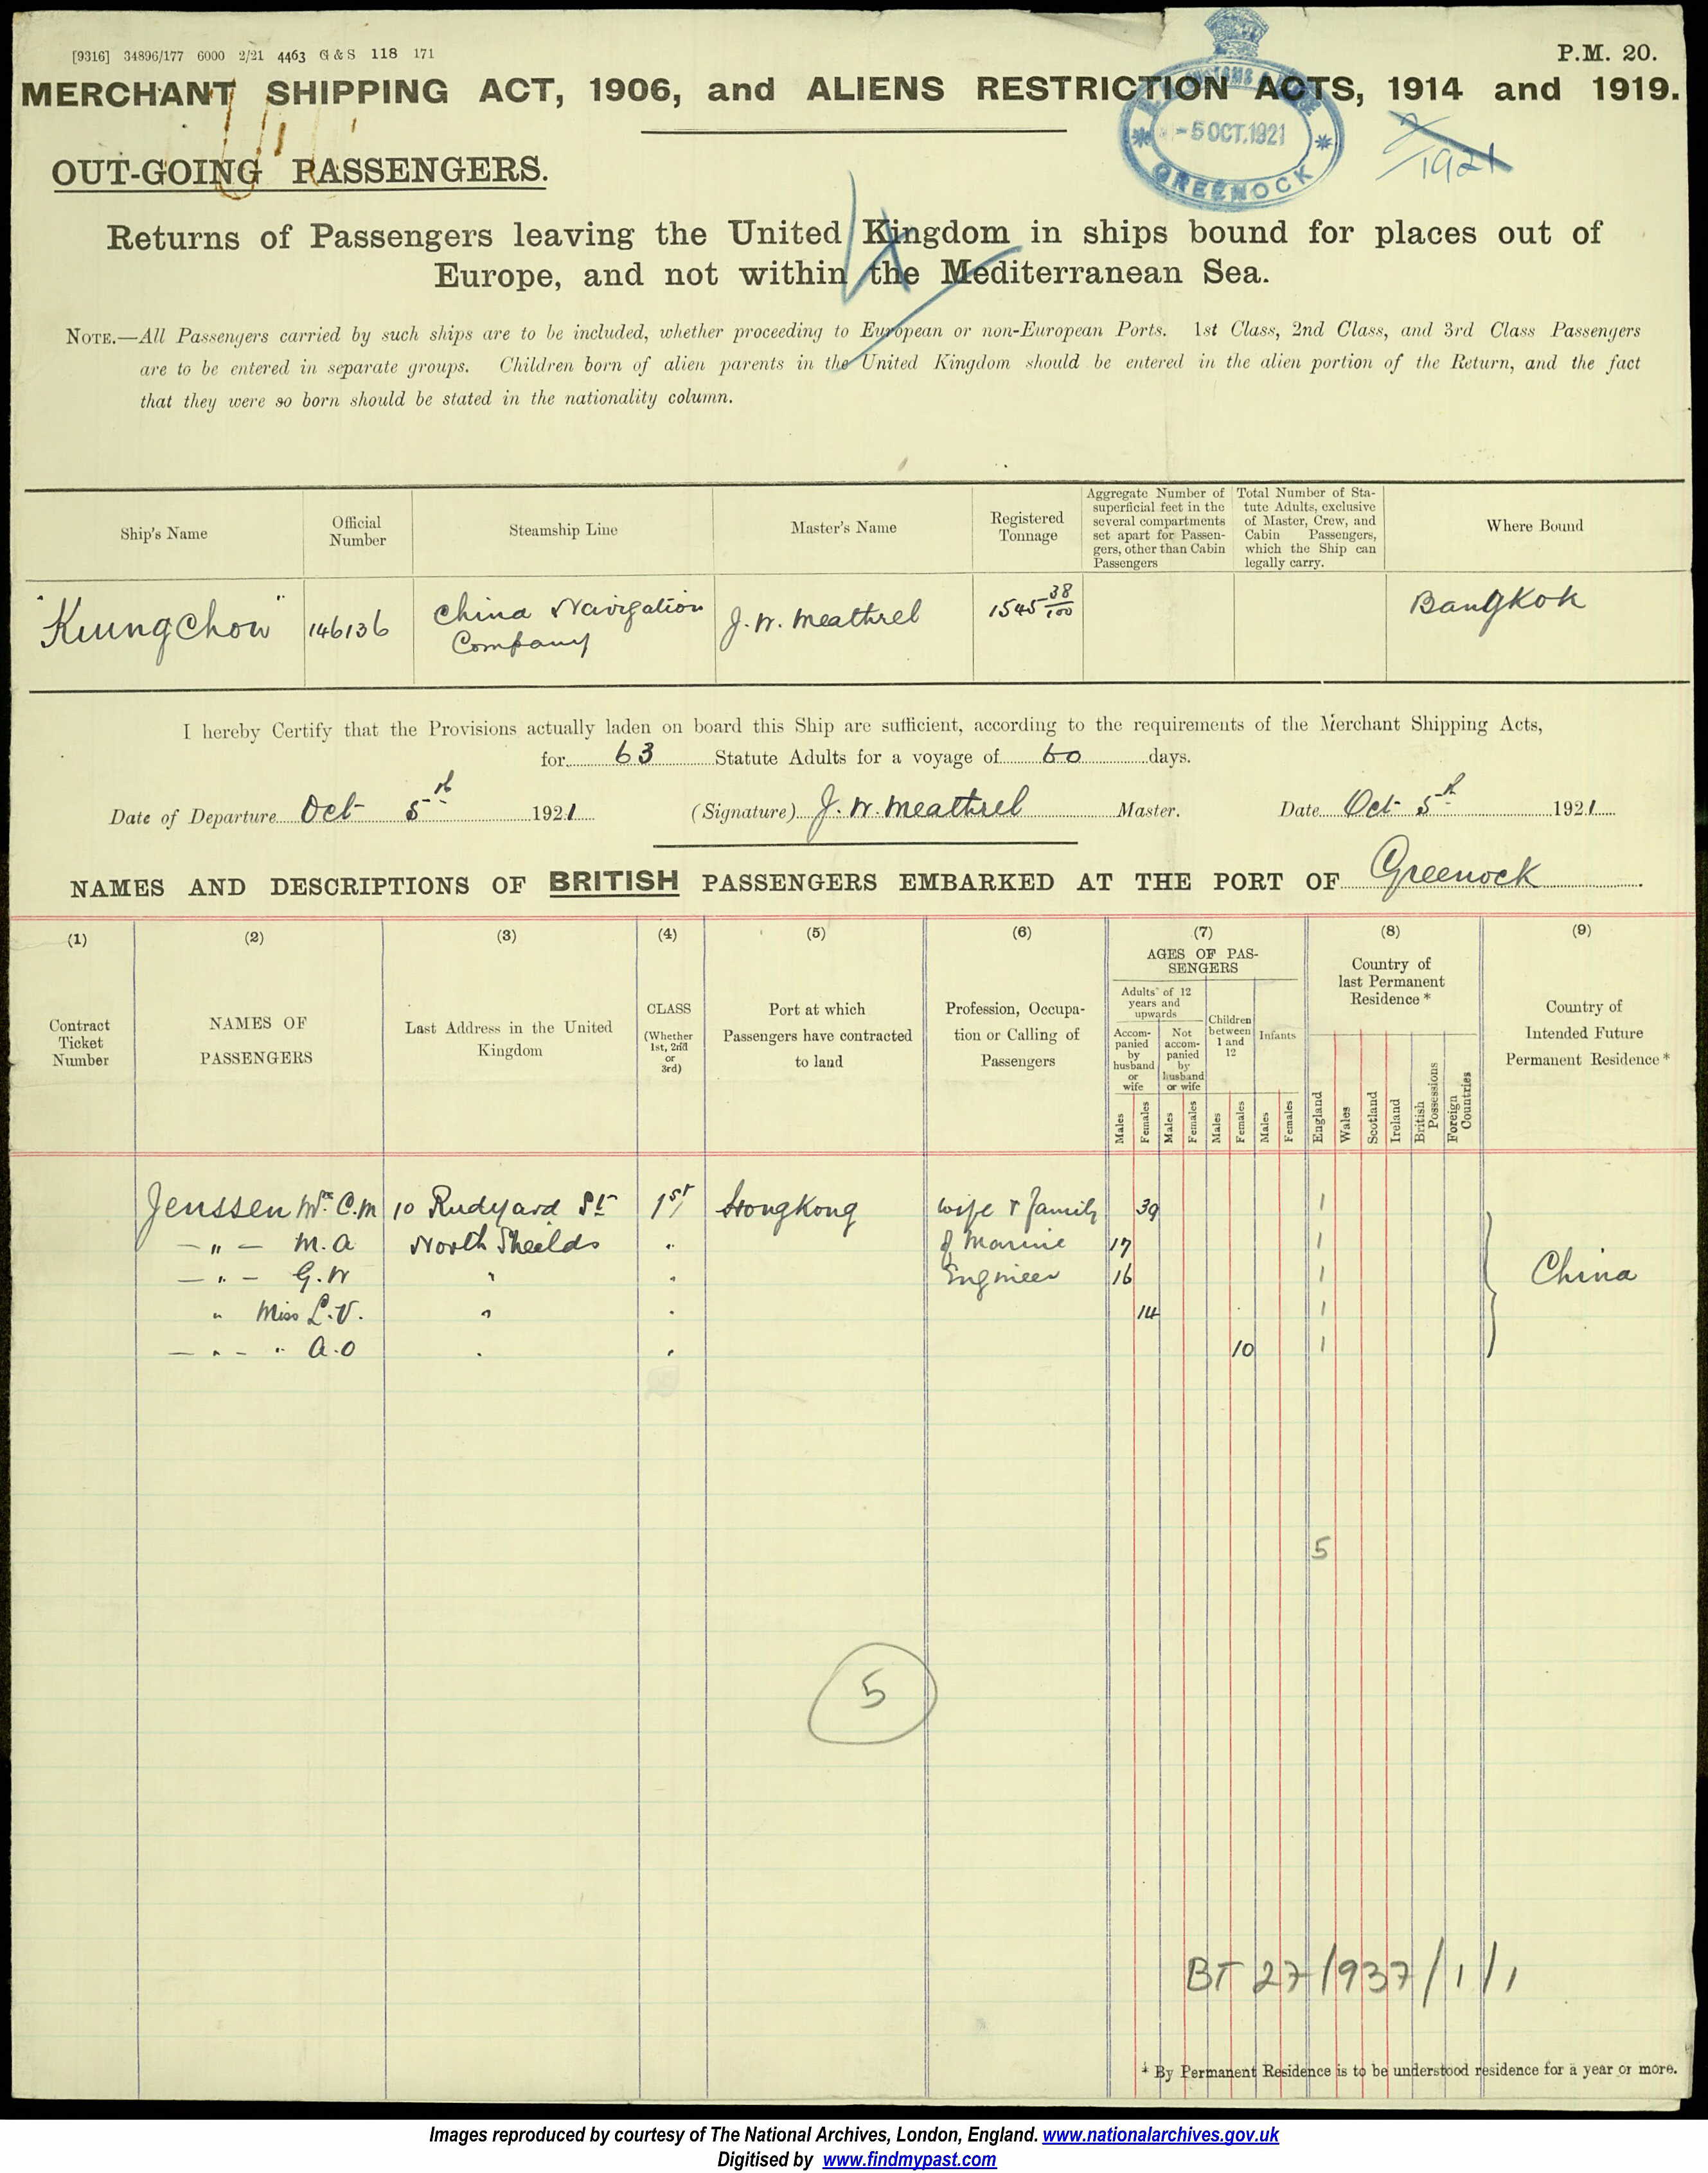 [9316] 34896/177 6000 2/21 4463 G & S 118 171
P.M. 20.
MERCHANT SHIPPING ACT, 1906, and ALIENS RESTRICTION ACTS, 1914 and 1919.
-5 OCT.1921
GREENOCK
1921
OUT-GOING PASSENGERS.
Returns of Passengers leaving the United Kingdom in ships bound for places out of
Europe, and not within the Mediterranean Sea.
NOTE.—All Passengers carried by such ships are to be included, whether proceeding to European or non-European Ports. 1st Class, 2nd Class, and 3rd Class Passengers
are to be entered in separate groups. Children born of alien parents in the United Kingdom should be entered in the alien portion of the Return, and the fact
that they were so born should be stated in the nationality column.
Ship's Name
Official Number
Steamship Line
Master's Name
Registered Tonnage
Aggregate Number of superficial feet in the several compartments set apart for Passengers, other than Cabin Passengers
Total Number of Statute Adults, exclusive of Master, Crew, and Cabin Passengers, which the Ship can legally carry.
Where Bound
"Kiungchow"
146136
China Navigation
Company
J. W. Meathrel
1545 38/100
Bangkok
I hereby Certify that the Provisions actually laden on board this Ship are sufficient, according to the requirements of the Merchant Shipping Acts,
for 63 Statute Adults for a voyage of 60 days.
Date of Departure Oct 5th 1921 (Signature) J. W. Meathrel Master. Date Oct 5th 1921
NAMES AND DESCRIPTIONS OF BRITISH PASSENGERS EMBARKED AT THE PORT OF Greenock
(1) (2) (3) (4) (5) (6) (7) (8) (9)
Contract Ticket Number
NAMES OF PASSENGERS
Last Address in the United Kingdom
CLASS (Whether 1st, 2nd or 3rd)
Port at which Passengers have contracted to land
Profession, Occupation or Calling of Passengers
AGES OF PASSENGERS
Adults of 12 years and upwards
Accompanied by husband or wife
Not accompanied by husband or wife
Children between 1 and 12
Infants
Males Females Males Females Males Females Males Females
Country of last Permanent Residence *
England Wales Scotland Ireland British Possessions Foreign Countries
Country of Intended Future Permanent Residence *
Jenssen Mrs C.M 10 Rudyard St 1st Hongkong wife & family 39 1
— " — M.A North Sheilds " of Marine 17 1
— " — G.W " " Engineer 16 1 China
" Miss L.V. " " 14 1
— " — " A.O " " 10 1
5
5
BT 27/937/1/1
* By Permanent Residence is to be understood residence for a year or more.
Images reproduced by courtesy of The National Archives, London, England. www.nationalarchives.gov.uk
Digitised by www.findmypast.com